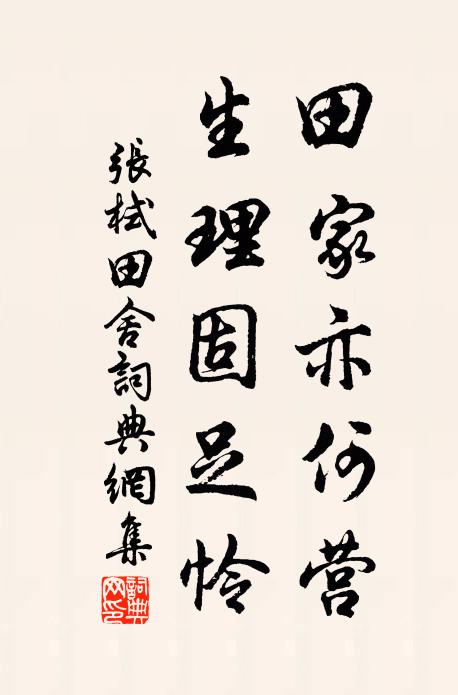 田家亦何营
生理固足怜
張栻田舍詞典網集
詞典网印